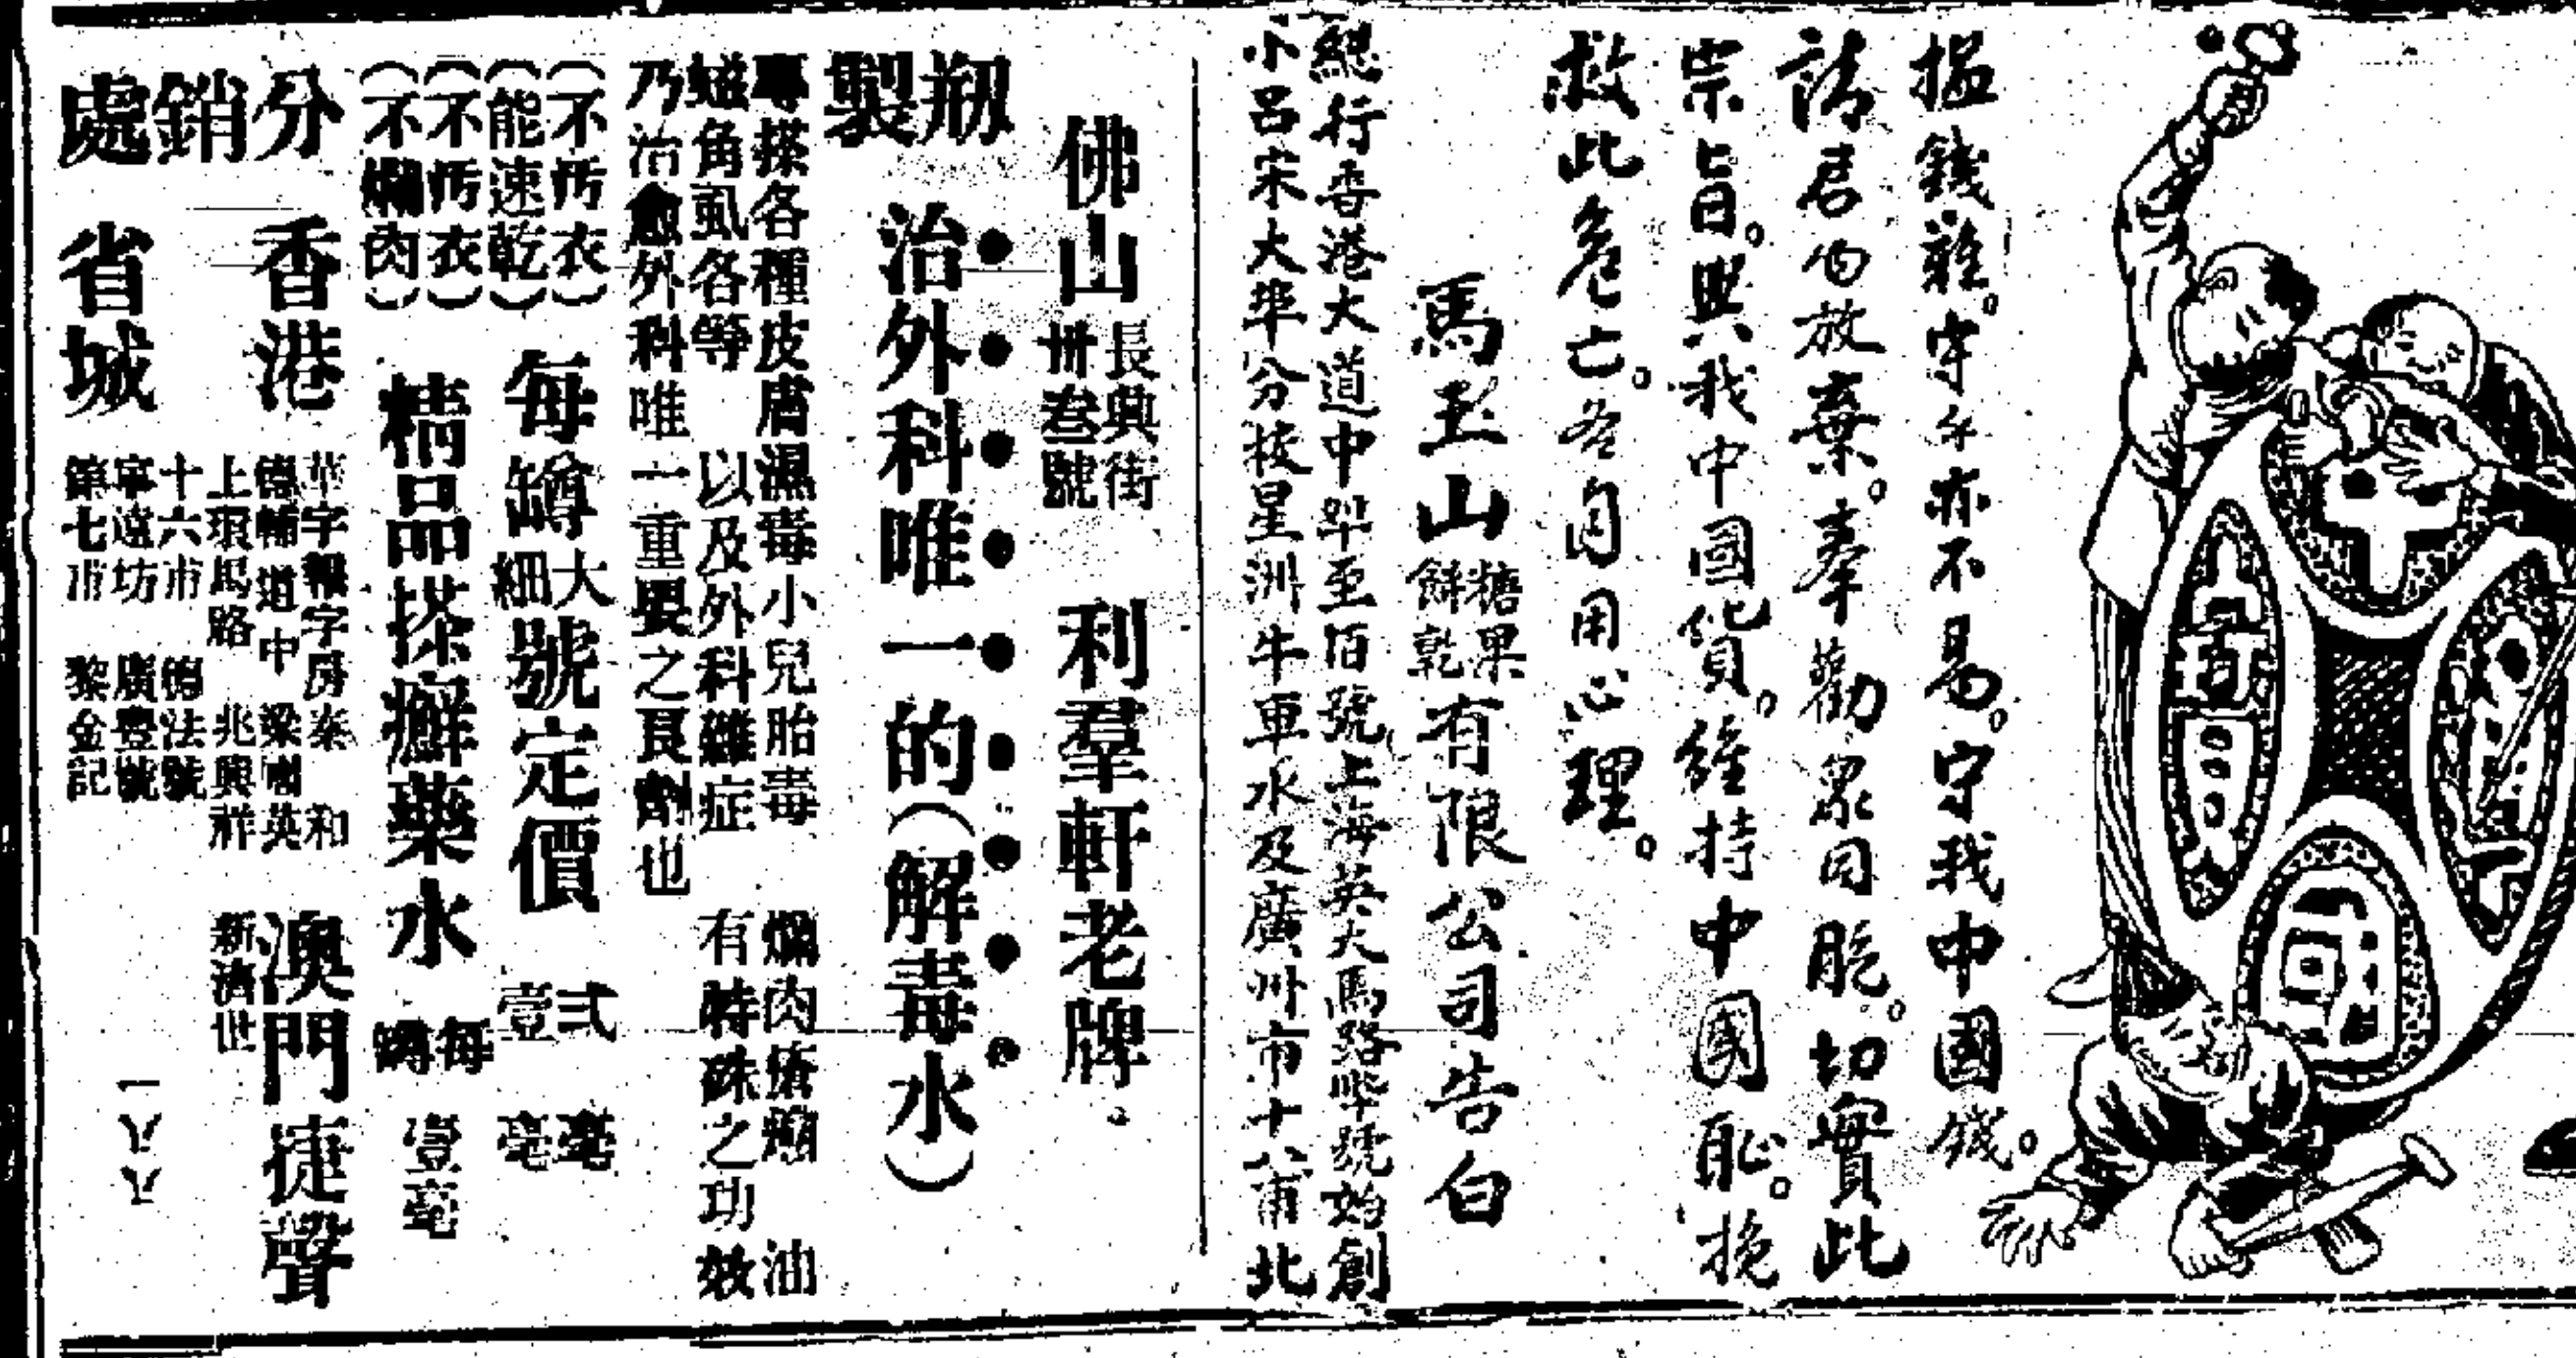 搵錢難。守乍亦不易。守我中國錢。
請君勿放棄。奉勸眾同胞。切實此
宗旨。興我中國貨。維持中國恥。挽
救此危亡。各自用心理。
馬玉山糖果餅乾有限公司告白
總行香港大道中 至佰號上海英大馬路 號始創
小呂宋大埠分枝星洲牛車水及廣州市十八甫北
佛山 長興街卅叁號 利羣軒老牌。
刱製 治外科唯一的(解毒水)
專搽各種皮膚濕毒小兒胎毒 爛肉瘡 油
角虱各等 以及外科雜症 有特殊之功效
乃治愈外科唯一重要之良劑也
(不汚衣)(能速乾) 每罇大細號定價 弍毫壹毫
(不汚衣)(不爛肉) 精品搽癬藥水 每罇壹毫
分銷處
香港 華字報字房秦和
德輔道中 梁國英
上環馬路 兆興祥
澳門 捷聲
新濟世
省城 十六甫 德法號
寧遠坊 廣豐號
第七甫 黎金記
一八八